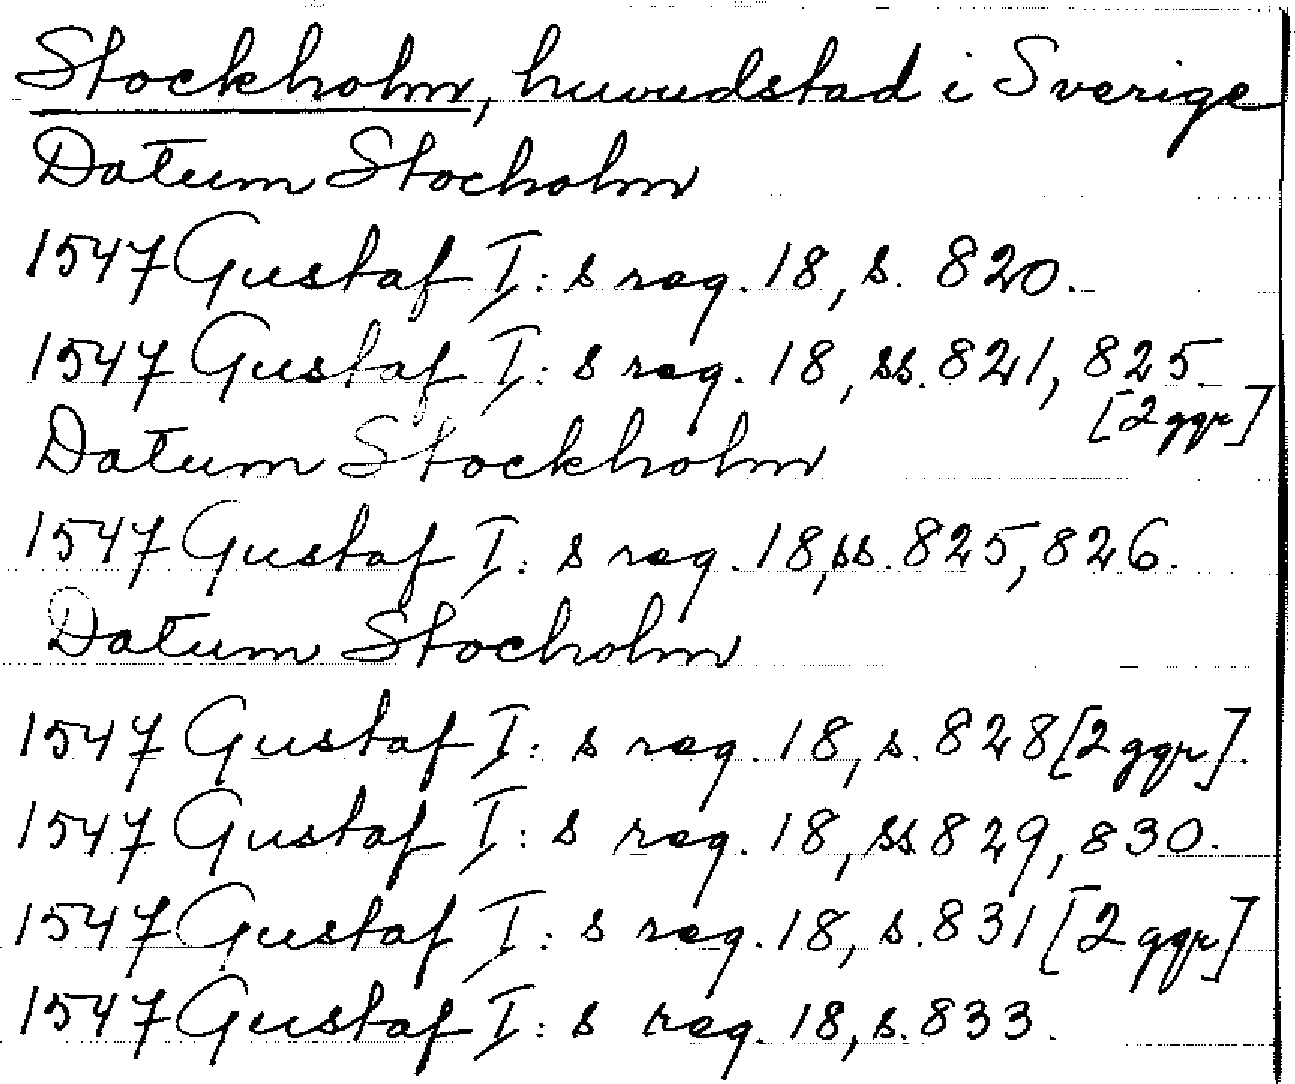 Stockholm, huvudstad i Sverige
Datum Stocholm
1547 Gustaf I: s reg. 18, s. 820.
1547 Gustaf I: s reg. 18, ss. 821, 825
[2 ggr]
Datum Stockholm
1547 Gustaf I: s reg. 18, ss. 825, 826.
Datum Stocholm
1547 Gustaf I: s reg. 18, s. 828 [2 ggr].
1547 Gustaf I: s reg. 18, ss 829, 830.
1547 Gustaf I: s reg. 18, s. 831 [2 ggr]
1547 Gustaf I: s reg. 18, s. 833.